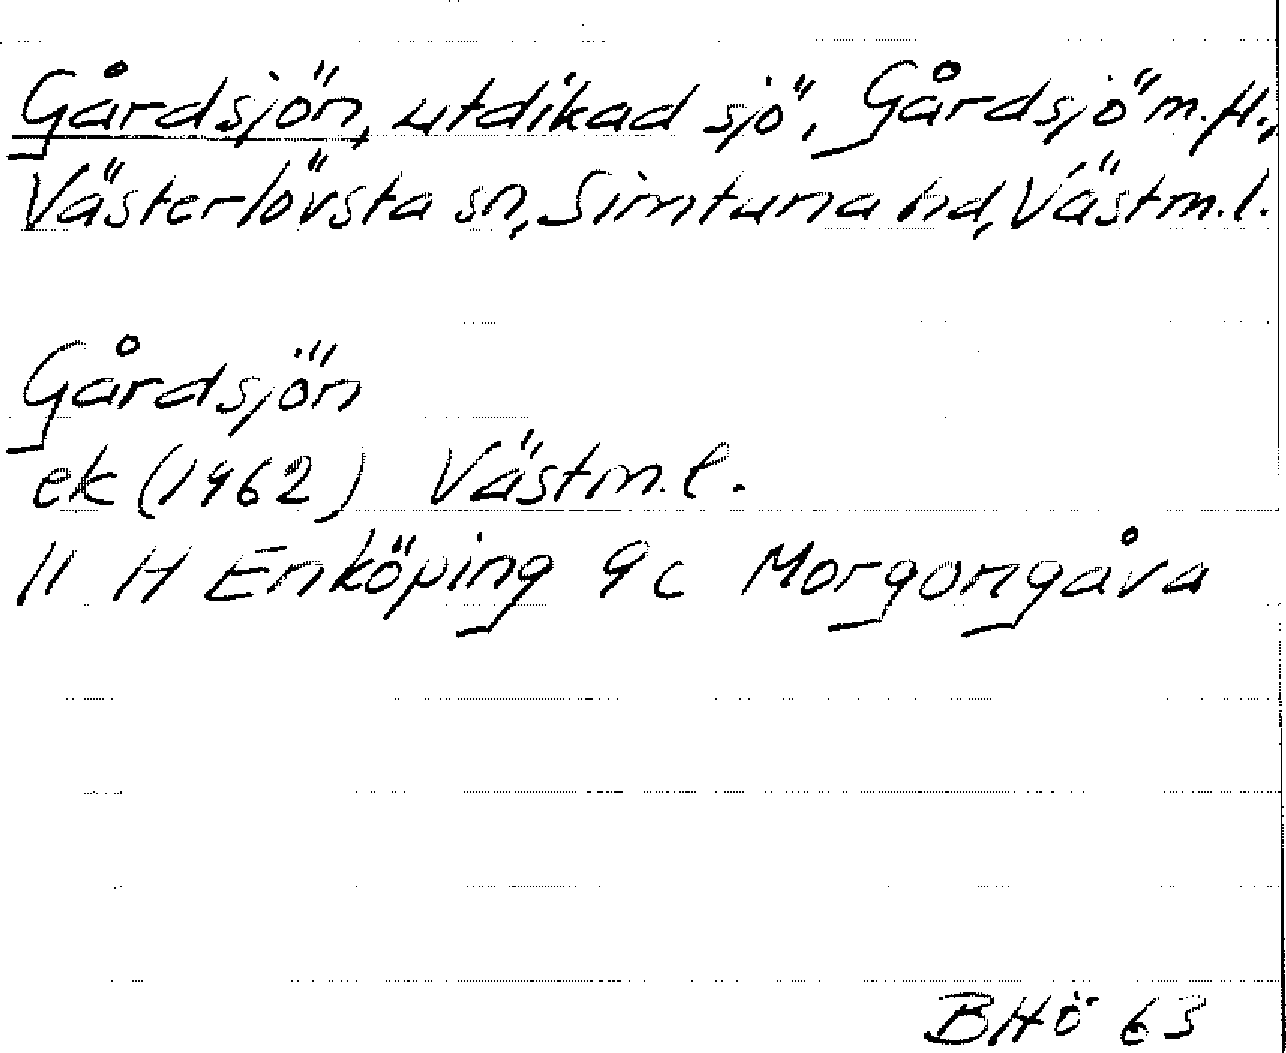 Gårdsjön, utdikad sjö, Gårdsjö m.fl.,
Västerlövsta sn, Simtuna hd, Västm.l.
Gårdsjön
ek (1962) Västm.l.
11 H Enköping 9c Morgongåva
BHö 63